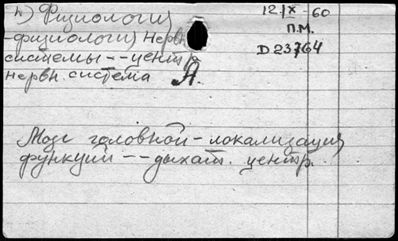 h) Физиология
12.IX - 60
-физиология нервн.
П.М.
системы -- центр.
D 23764
нервн. система
Я.
Мозг головной - локализация
функций -- дыхат. центр.